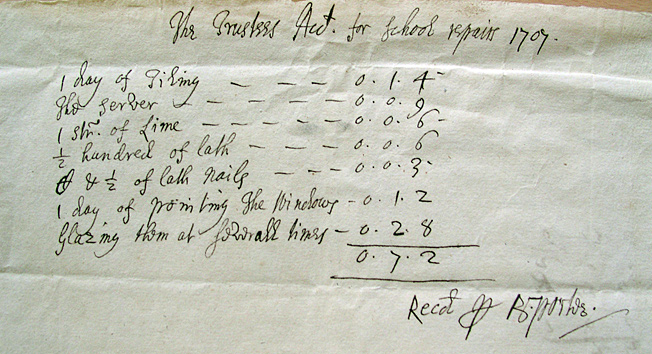 The Trustees Act. for School repairs 1707.
1 day of Tiling — — — 0 . 1 . 4
The Server — — — — 0 . 0 . 9
1 str. of Lime — — — — — 0 . 0 . 6
½ hundred of lath — — — 0 . 0 . 6
& ½ of lath Nails — — — 0 . 0 . 3
1 day of pointing the Windows — 0 . 1 . 2
Glazing them at severall times — 0 . 2 . 8
0 . 7 . 2
Recd